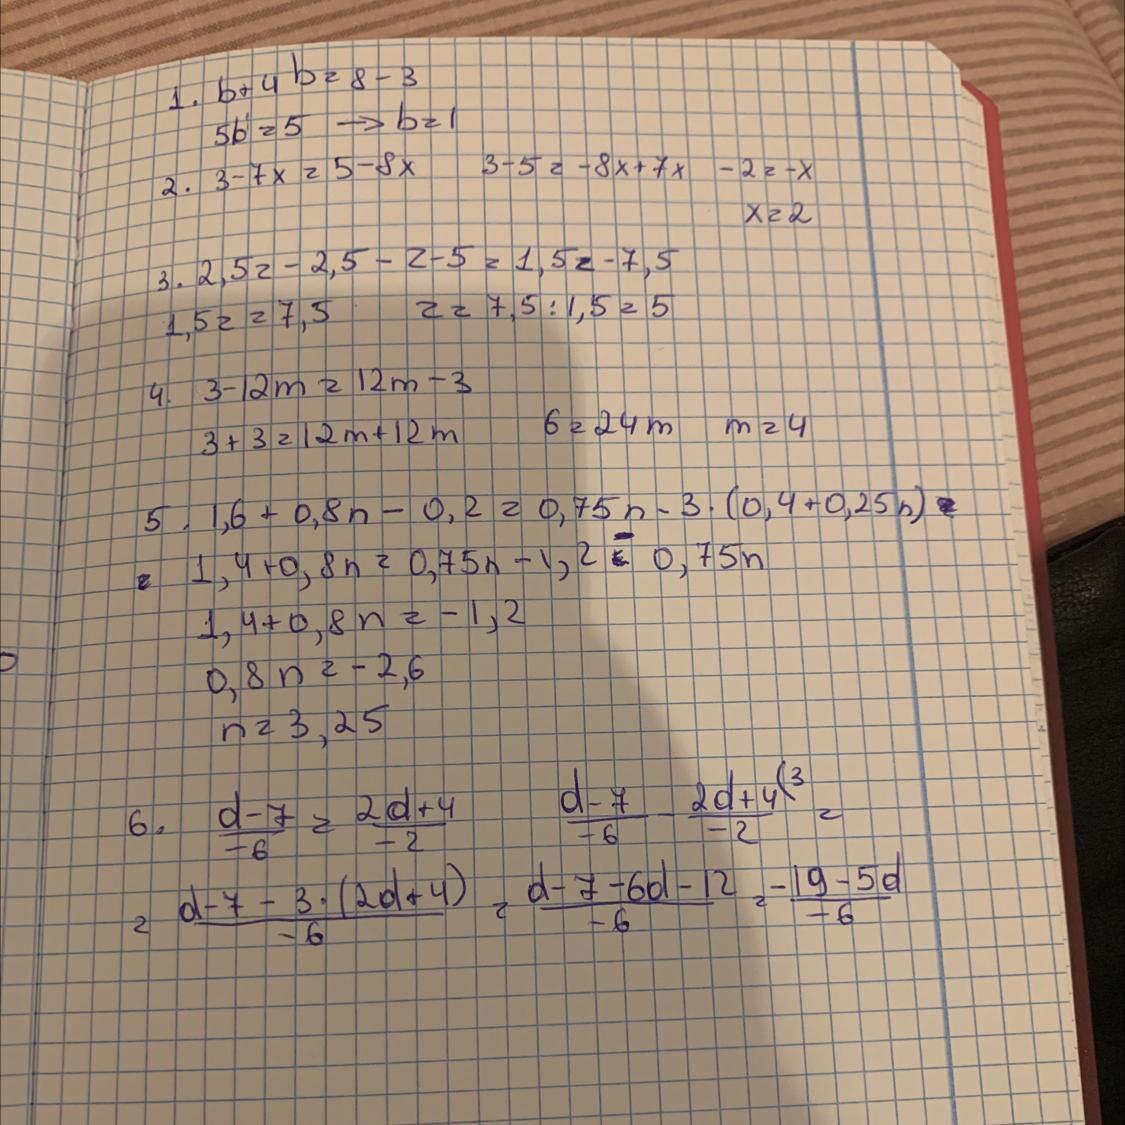 1. b+4b=8-3
5b=5 → b=1
2. 3-7x=5-8x 3-5=-8x+7x -2=-x
x=2
3. 2,5z-2,5-z-5=1,5z-7,5
1,5z=7,5 z=7,5:1,5=5
4. 3-12m=12m-3
3+3=12m+12m 6=24m m=4
5. 1,6+0,8n-0,2=0,75n-3·(0,4+0,25n)=
= 1,4+0,8n=0,75n-1,2-0,75n
1,4+0,8n=-1,2
0,8n=-2,6
n=3,25
6. (d-7)/(-6) = (2d+4)/(-2) (d-7)/(-6) - (2d+4)/(-2) (3 =
= (d-7-3·(2d+4))/(-6) = (d-7-6d-12)/(-6) = (-19-5d)/(-6)